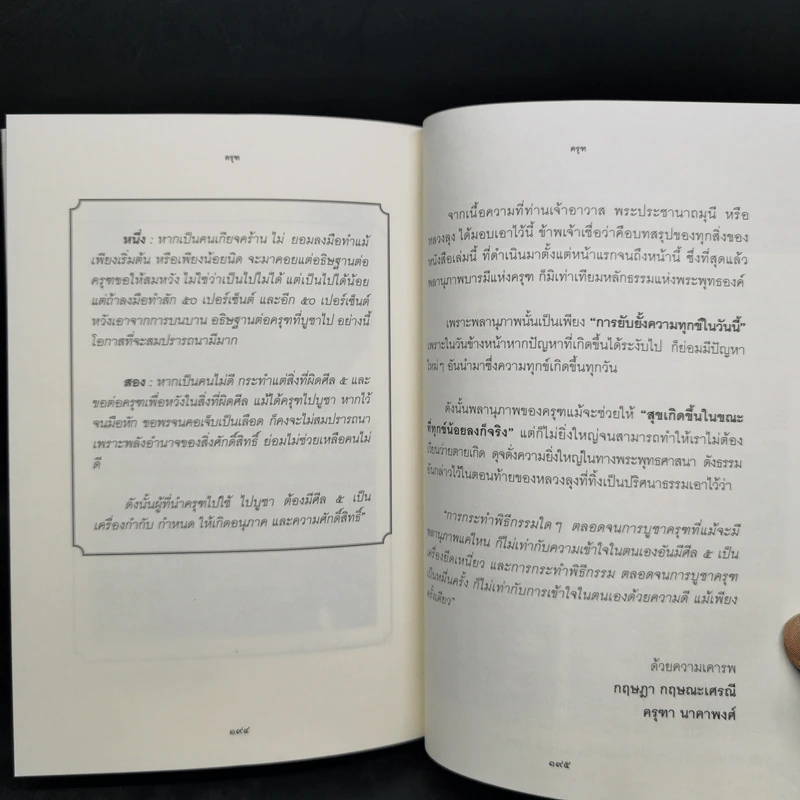 ครุฑ
หนึ่ง : หากเป็นคนเกียจคร้าน ไม่ ยอมลงมือทำแม้
เพียงเริ่มต้น หรือเพียงน้อยนิด จะมาคอยแต่อธิษฐานต่อ
ครุฑขอให้สมหวัง ไม่ใช่ว่าเป็นไปไม่ได้ แต่เป็นไปได้น้อย
แต่ถ้าลงมือทำสัก ๕๐ เปอร์เซ็นต์ และอีก ๕๐ เปอร์เซ็นต์
หวังเอาจากการบนบาน อธิษฐานต่อครุฑที่บูชาไป อย่างนี้
โอกาสที่จะสมปรารถนามีมาก
สอง : หากเป็นคนไม่ดี กระทำแต่สิ่งที่ผิดศีล ๕ และ
ขอต่อครุฑเพื่อหวังในสิ่งที่ผิดศีล แม้ได้ครุฑไปบูชา หากไว้
จนมือหัก ขอพรจนคอเจ็บเป็นเลือด ก็คงจะไม่สมปรารถนา
เพราะพลังอำนาจของสิ่งศักดิ์สิทธิ์ ย่อมไม่ช่วยเหลือคนไม่
ดี
ดังนั้นผู้ที่นำครุฑไปใช้ ไปบูชา ต้องมีศีล ๕ เป็น
เครื่องกำกับ กำหนด ให้เกิดอนุภาค และความศักดิ์สิทธิ์"
๑๙๔
ครุฑ
จากเนื้อความที่ท่านเจ้าอาวาส พระประชานาถมุนี หรือ
หลวงลุง ได้มอบเอาไว้นี้ ข้าพเจ้าเชื่อว่าคือบทสรุปของทุกสิ่งของ
หนังสือเล่มนี้ ที่ดำเนินมาตั้งแต่หน้าแรกจนถึงหน้านี้ ซึ่งที่สุดแล้ว
พลานุภาพบารมีแห่งครุฑ ก็มิเท่าเทียมหลักธรรมแห่งพระพุทธองค์
เพราะพลานุภาพนั้นเป็นเพียง "การยับยั้งความทุกข์ในวันนี้"
เพราะในวันข้างหน้าหากปัญหาที่เกิดขึ้นได้ระงับไป ก็ย่อมมีปัญหา
ใหม่ๆ อันนำมาซึ่งความทุกข์เกิดขึ้นทุกวัน
ดังนั้นพลานุภาพของครุฑแม้จะช่วยให้ "สุขเกิดขึ้นในขณะ
ที่ทุกข์น้อยลงก็จริง" แต่ก็ไม่ยิ่งใหญ่จนสามารถทำให้เราไม่ต้อง
เวียนว่ายตายเกิด ดุจดั่งความยิ่งใหญ่ในทางพระพุทธศาสนา ดังธรรม
อันกล่าวไว้ในตอนท้ายของหลวงลุงที่ทิ้งเป็นปริศนาธรรมเอาไว้ว่า
"การกระทำพิธีกรรมใดๆ ตลอดจนการบูชาครุฑที่แม้จะมี
พลานุภาพแค่ไหน ก็ไม่เท่ากับความเข้าใจในตนเองอันมีศีล ๕ เป็น
เครื่องยึดเหนี่ยว และการกระทำพิธีกรรม ตลอดจนการบูชาครุฑ
เป็นหมื่นครั้ง ก็ไม่เท่ากับการเข้าใจในตนเองด้วยความดี แม้เพียง
ครั้งเดียว"
ด้วยความเคารพ
กฤษฎา กฤษณะเศรณี
ครุฑา นาคาพงศ์
๑๙๕